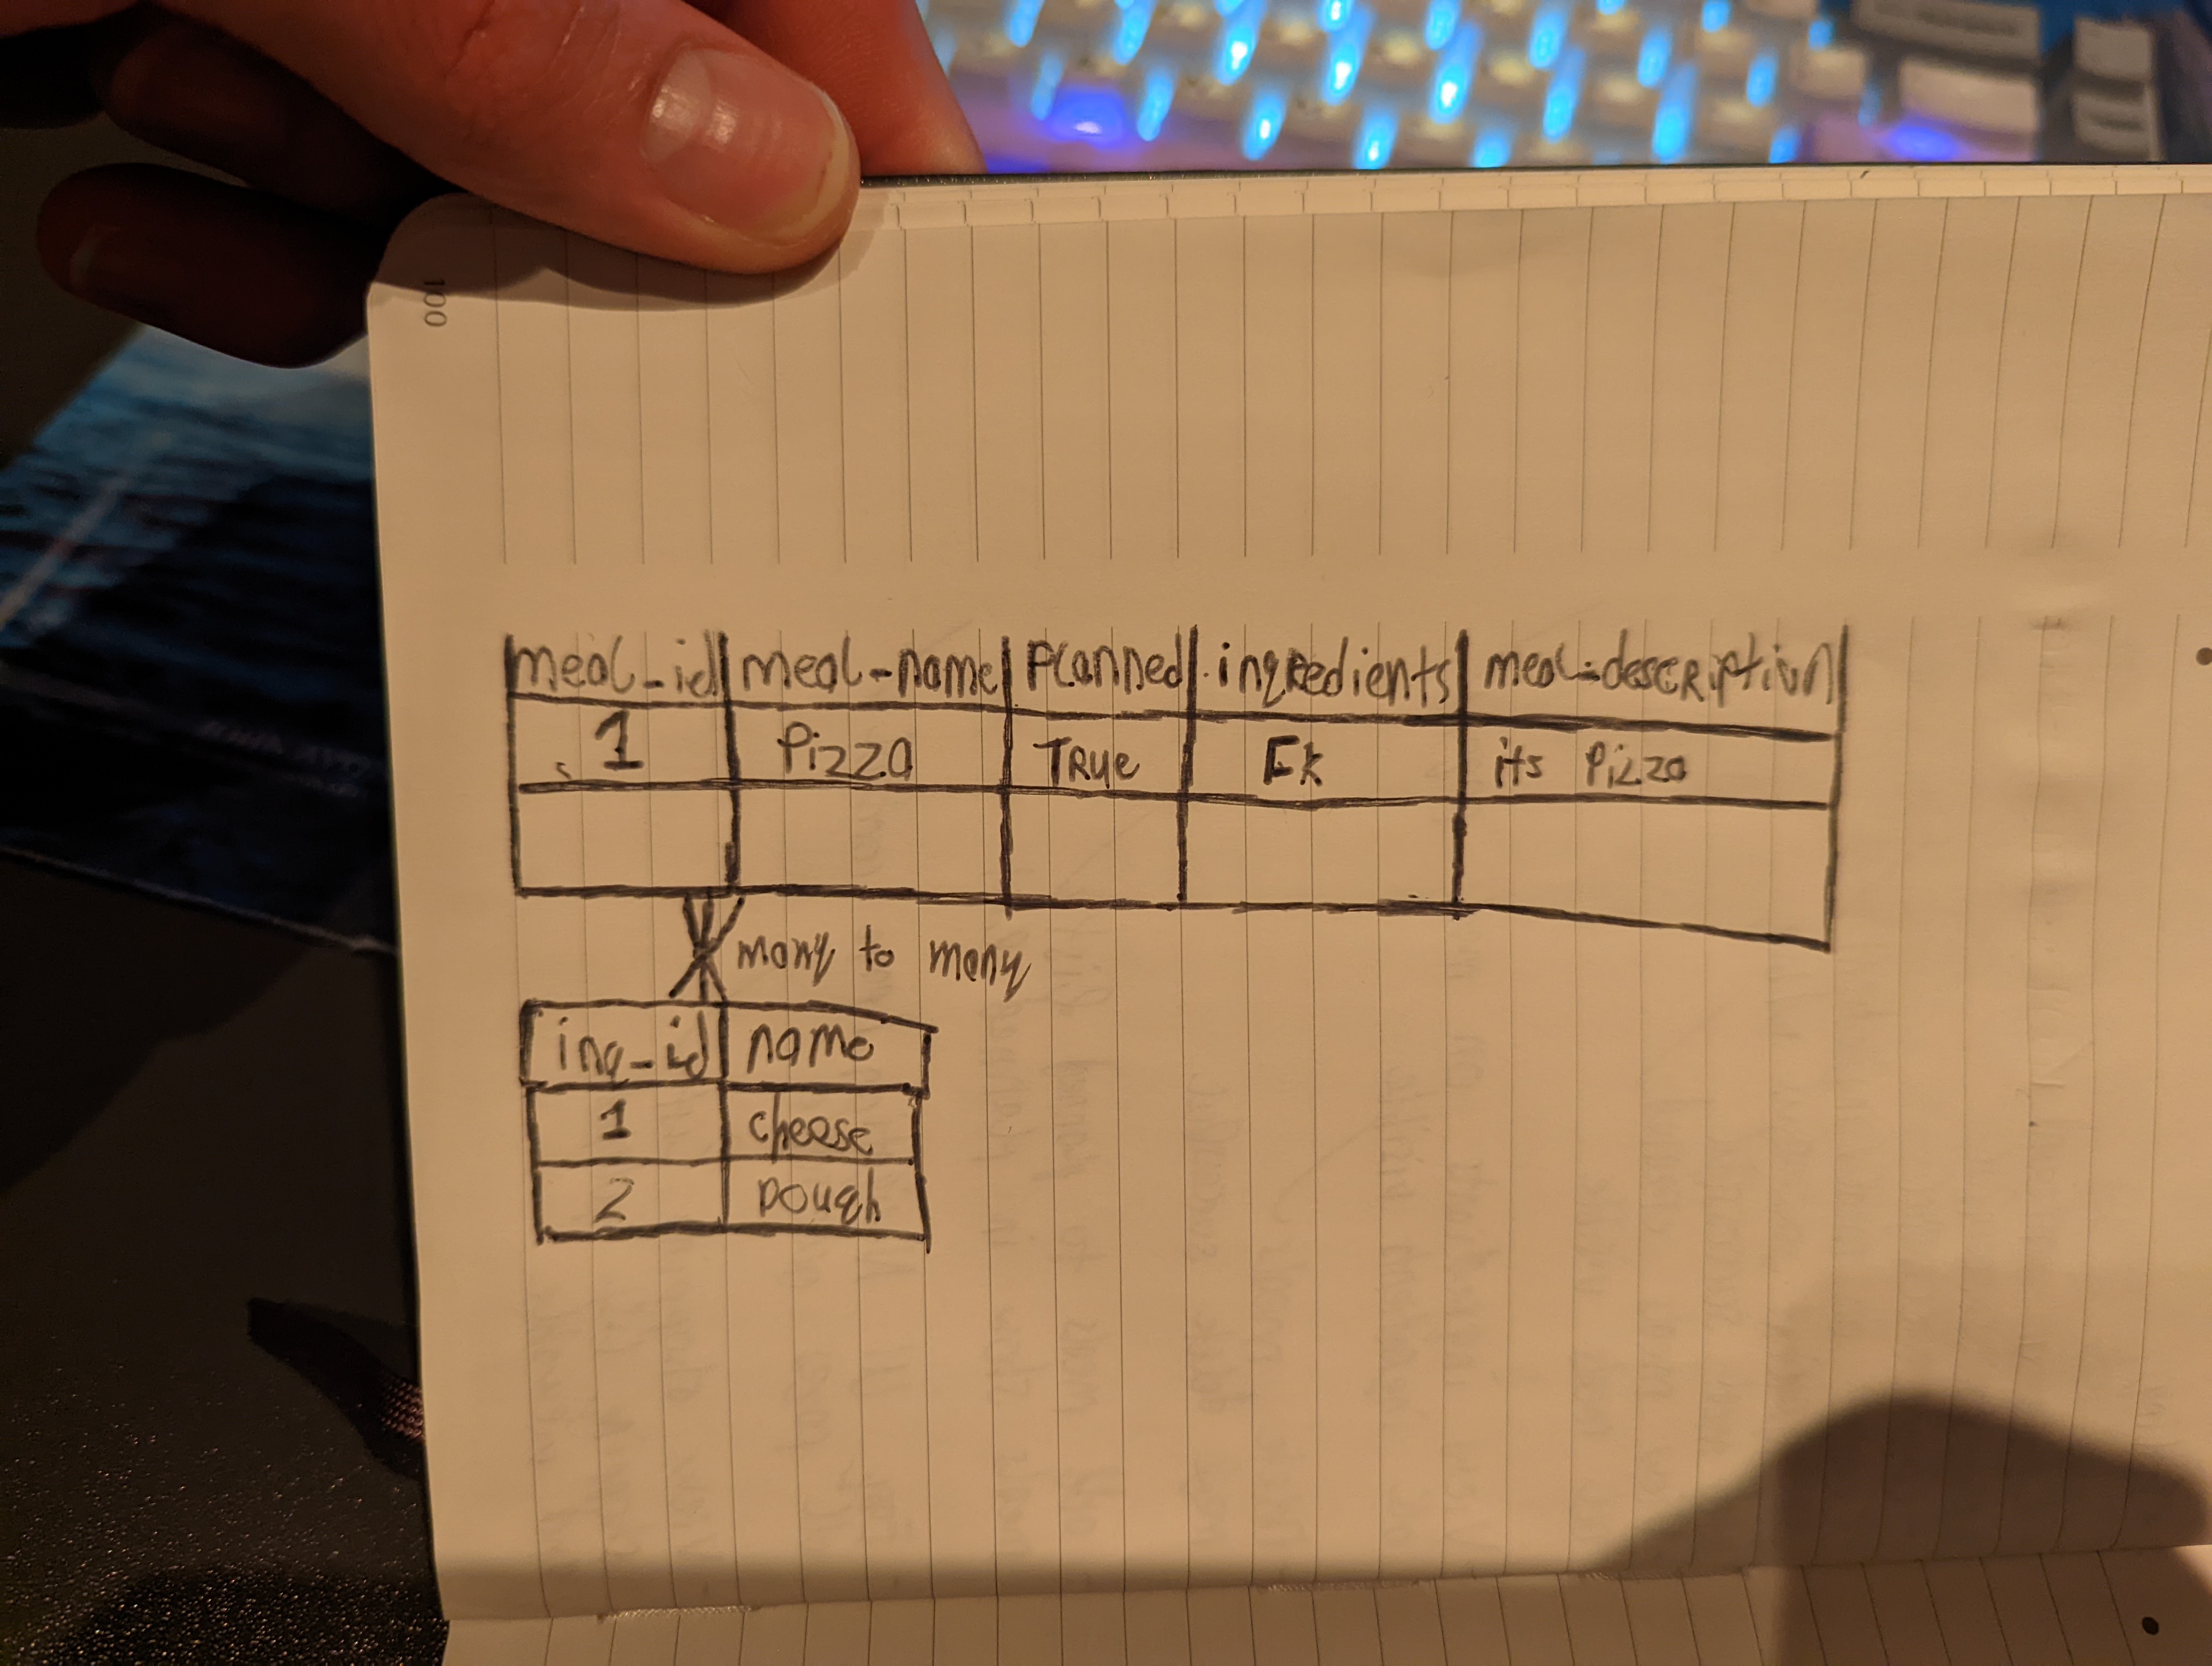 100
meal_id meal-name Planned ingredients meal-description
1 Pizza True Fk its Pizza
many to many
ing_id name
1 cheese
2 Dough